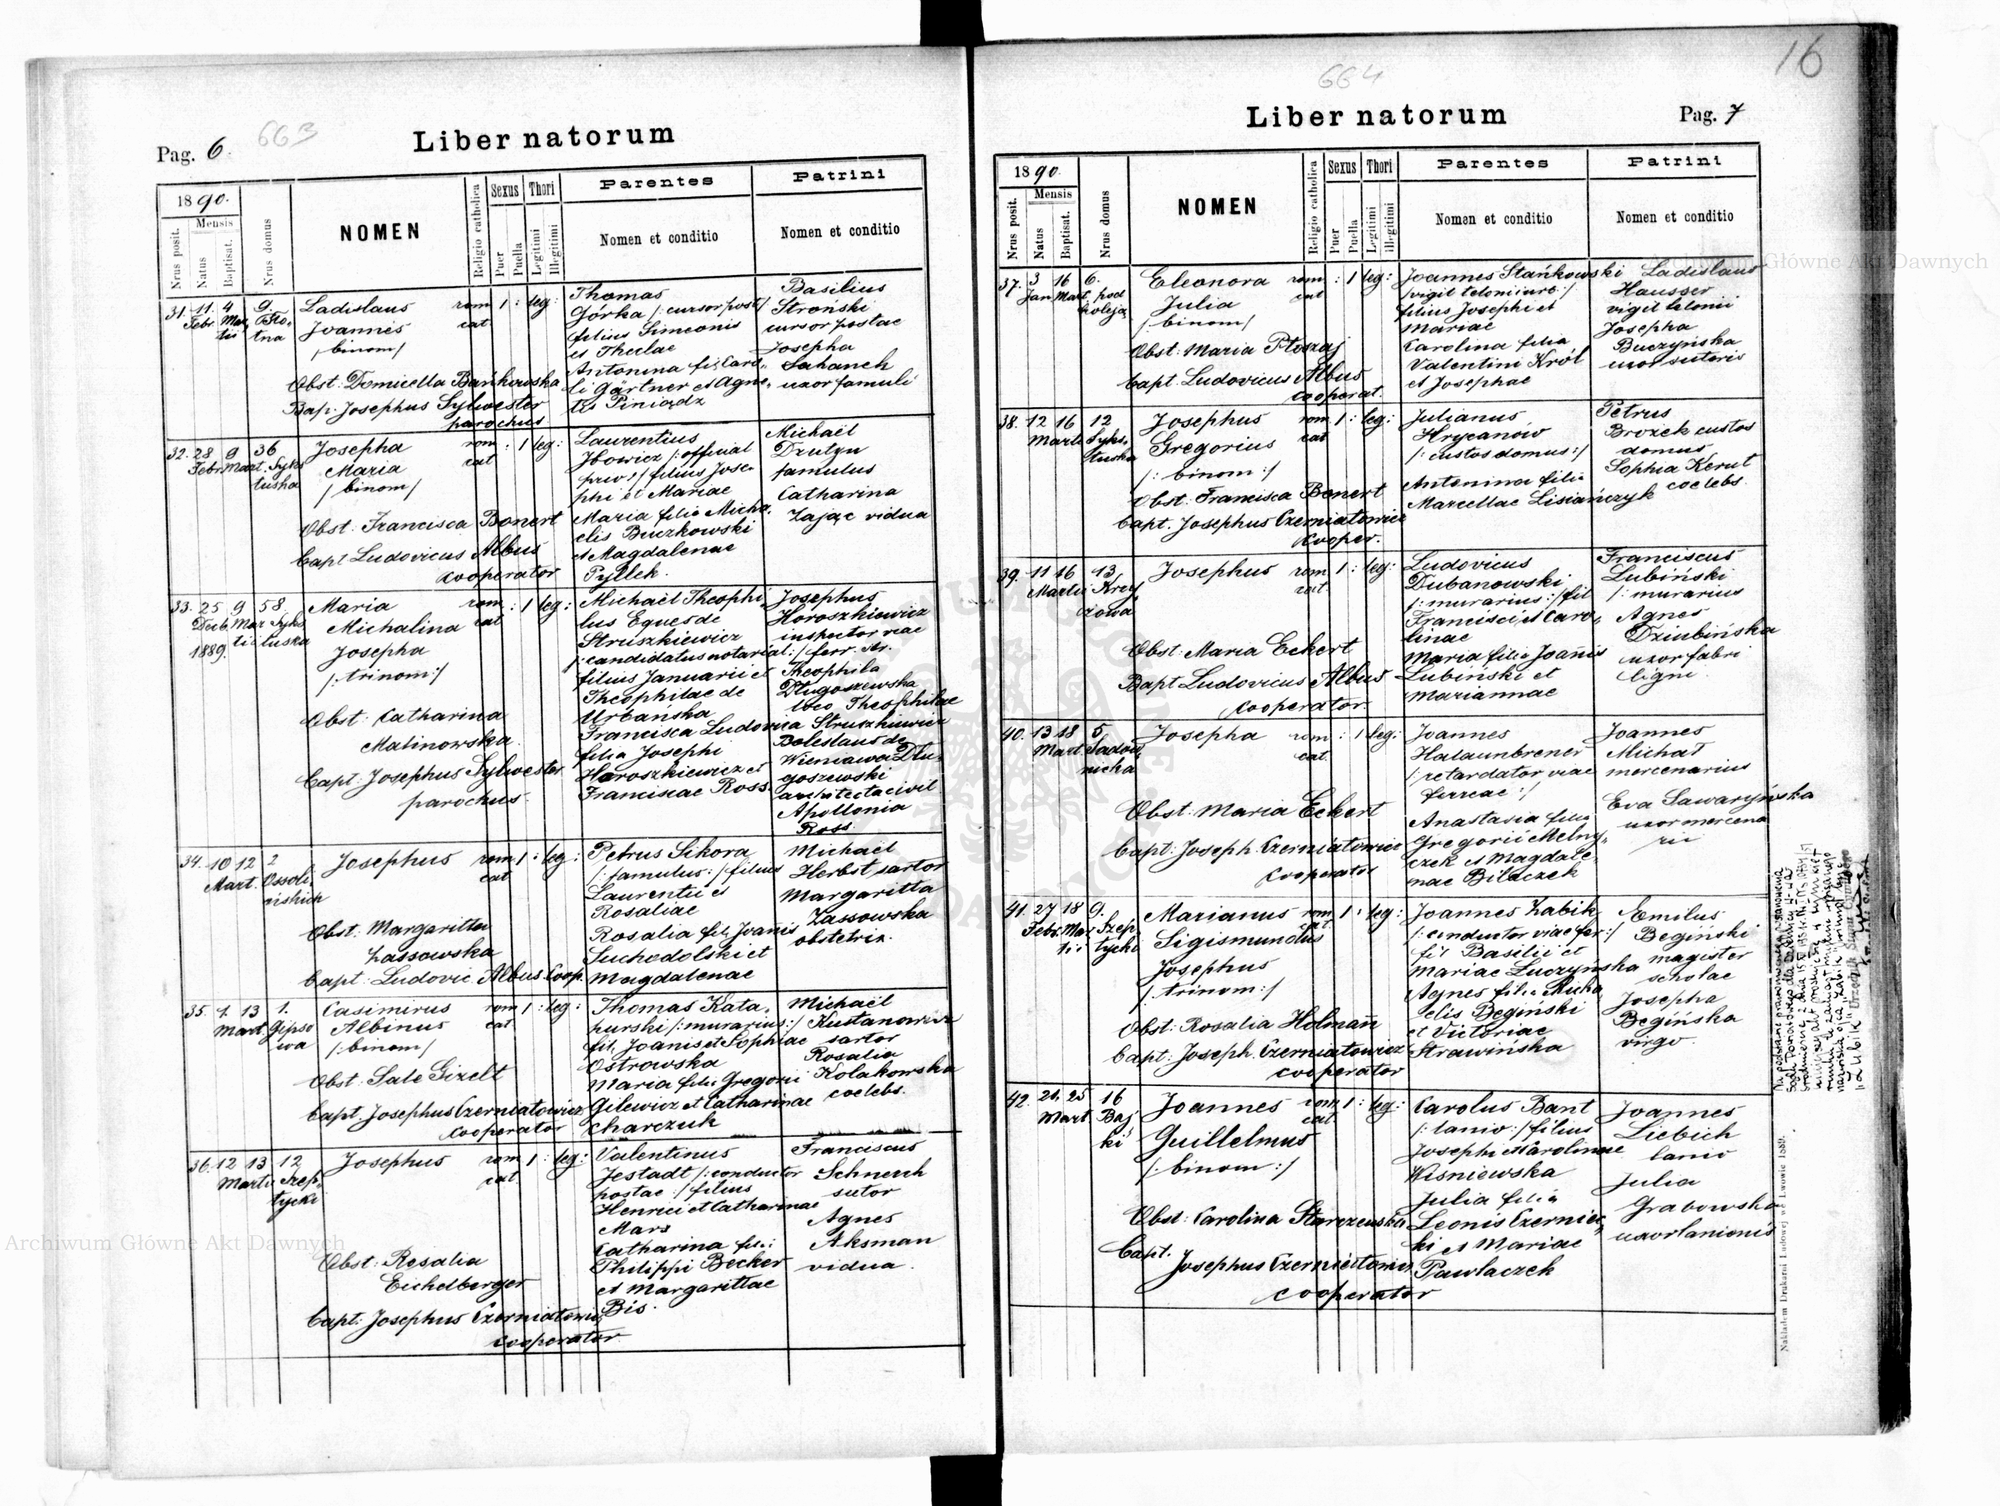 16
663
Pag. 6.
Liber natorum
1890.
Nrus posit.
Mensis
Natus
Baptisat.
Nrus domus
NOMEN
Religio catholica
Sexus
Puer
Puella
Thori
Legitimi
Illegitimi
Parentes
Nomen et conditio
Patrini
Nomen et conditio
31. 11. 4 9.
Febr. Mar
tii tna
Ladislaus
Joannes
/binom/
Obst: Domicella Bańkowska
Bap: Josephus Sylwester
parochus
rom 1 : leg:
cat
Thomas
Górka /: cursor post/
filius Simeonis
et Theclae
Antonina fil Caro
li Gärtner et Agne
tis Piniądz
Basilius
Stroński
cursor postae
Josepha
Sahanek
uxor famuli
32. 28 9 36
Febr Mart. Syks
tuska
Josepha
Maria
/binom/
Obst: Francisca Bonert
Bapt Ludovicus Albus
cooperator
rom : 1 leg:
cat
Laurentius
Jbowicz /: official
priv:/ filius Jose
phi et Mariae
Maria filia Micha
elis Buczkowski
et Magdalenae
Pyllek.
Michaël
Dzutyn
famulus
Catharina
Zając vidua
33. 25 9 58
Decb. Mar Syks
1889. tii tuska
Maria
Michalina
Josepha
/: trinom:/
Obst: Catharina
Malinowska.
Bapt: Josephus Sylwester
parochus.
rom : 1 leg:
cat
Michaël Theophi
lus Eques de
Struszkiewicz
/: candidatus notarial:/
filius Januarii et
Theophilae de
Urbańska
Francisca Ludovica
filia Josephi
Horoszkiewicz et
Franciscae Ross.
Josephus
Horoszkiewicz
inspector viae
ferr. Ar.
Theophila
Długoszewska
loco Theophilae
Struszkiewicz
Boleslaus de
Wieniawa Dłu
goszewski
architecta civil
Apollonia
Ross.
34. 10 12 2
Mart. Ossoli
ńskich
Josephus
Obst: Margaritta
Lassowska
Bapt: Ludovic Albus Coop.
rom 1 : leg:
cat
Petrus Sikora
/: famulus:/ filius
Laurentii et
Rosaliae
Rosalia fil. Joanis
Suchodolski et
Magdalenae
Michaël
Herbst sartor
Margaritta
Zassowska
obstetrix.
35. 1. 13 1.
Mart. Gipso
wa
Casimirus
Albinus
/:binom/
Obst: Sale Gizelt
Bapt. Josephus Czerniatowicz
cooperator
rom 1 : leg:
cat
Thomas Kata
purski /: murarius:/
fil. Joanis et Sophiae
Ostrowska
Maria filia Gregorii
Gilewicz et Catharinae
Charczuk
Michaël
Kustanowicz
sartor
Rosalia
Kolakowska
coelebs.
36. 12 13 12
Martii Szep
tycki
Josephus
Obst: Rosalia
Eichelberger
Bapt: Josephus Czerniatowicz
cooperator
rom 1 : leg:
cat
Valentinus
Jestadt /: conductor
postae :/ filius
Henrici et Catharinae
Mars
Catharina fil:
Philippi Becker
et Margarittae
Bis.
Franciscus
Schnerch
sutor
Agnes
Aksman
vidua.
664
Liber natorum
Pag. 7
1890.
Nrus posit.
Mensis
Natus
Baptisat.
Nrus domus
NOMEN
Religio catholica
Sexus
Puer
Puella
Thori
Legitimi
illegitimi
Parentes
Nomen et conditio
Patrini
Nomen et conditio
37. 3 16 6.
Jan Mart pod
koleją
Eleonora
Julia
/:binom/
Obst: Maria Ptoszaj
Bapt Ludovicus Albus
cooperat.
rom : 1 leg:
cat
Joannes Stańkowski
/vigil telonii urb:/
filius Josephi et
Mariae
Carolina filia
Valentini Król
et Josephae
Ladislaus
Hausser
vigil telonii
Josepha
Buczyńska
uxor sutoris
38. 12 16 12
Martii Syks
tuska
Josephus
Gregorius
/: binom:/
Obst: Francisca Bonert
Bapt. Josephus Czerniatowicz
cooper.
rom 1 : leg:
cat
Julianus
Hrycanów
/: custos domus:/
Antonina filia
Marcellae Lisiańczyk
Petrus
Brożek custos
domus
Sophia Kerut
coelebs.
39. 11 16 13
Martii Krzy
żowa
Josephus
Obst: Maria Eckert
Bapt Ludovicus Albus
cooperator.
rom 1 : leg:
cat.
Ludovicus
Dubanowski
/: murarius:/ fil
Francisci et Caro
linae
Maria filia Joanis
Lubiński et
Mariannae
Franciscus
Lubiński
/: murarius
Agnes
Dziubińska
uxor fabri
ligni.
40. 13 18 5
Mart. Sadow
nicka
Josepha
Obst: Maria Eckert
Bapt: Joseph. Czerniatowicz
cooperator
rom : 1 leg:
cat.
Joannes
Halaunbrener
/: retardator viae
ferreae :/
Anastasia filia
Gregorii Melny
czek et Magdale
nae Bilaczek
Joannes
Michał
mercenarius
Eva Sawaryńska
uxor mercena
rii
41. 27 18 9.
Febr. Mar Szep
tii tycki
Marianus
Sigismundus
Josephus
/: trinom:/
Obst: Rosalia Holmañ
Bapt: Joseph. Czerniatowicz
cooperator
rom 1 : leg:
cat
Joannes Zabik
/: conductor viae fer:/
fil Basilii et
Mariae Łuczyńska
Agnes filia Micha
elis Begiński
et Victoriae
Strawińska
Emilus
Begiński
magister
scholae
Josepha
Begińska
virgo.
42. 21. 25 16
Mart Baj
ki
Joannes
Guillelmus
/: binom :/
Obst: Carolina Starczewska
Bapt.
Josephus Czerniatowicz
cooperator
rom 1 : leg:
cat.
Carolus Bant
/: lanio:/ filius
Josephi et Carolinae
Wiśniewska
Julia filia
Leonis Czerniec
ki et Mariae
Pawlaczek
Joannes
Liebich
lanio
Julia
Grabowska
uxor lanionis
Nakładem Drukarni Ludowej we Lwowie 1889.
Archiwum Główne Akt Dawnych
Archiwum Główne Akt Dawnych